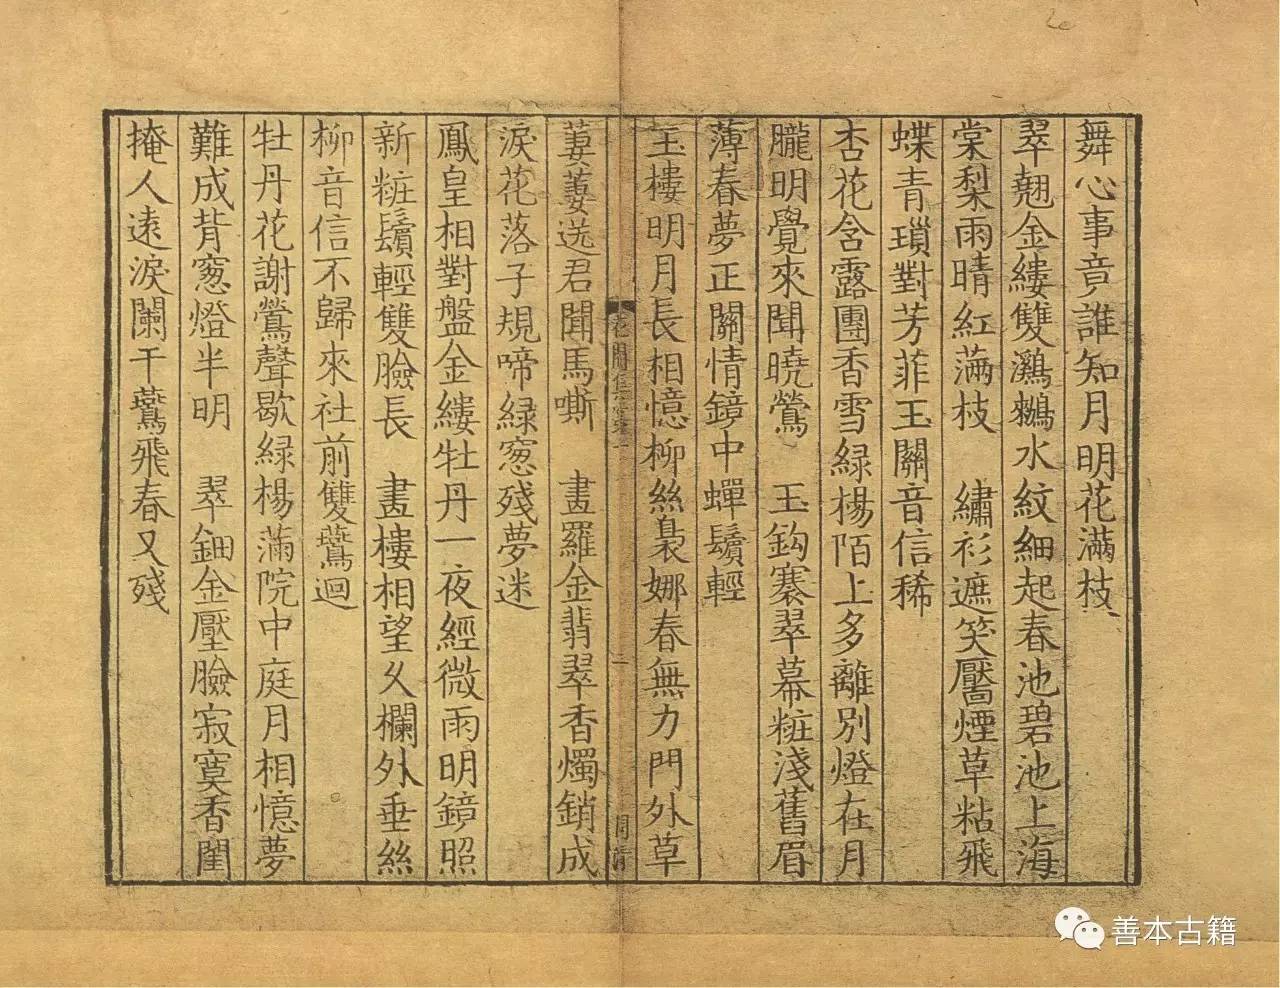 舞心事竟誰知月明花滿枝
翠翹金縷雙鸂鶒水紋細起春池碧池上海
棠梨雨晴紅滿枝　繡衫遮笑靨煙草粘飛
蝶青瑣對芳菲玉關音信稀
杏花含露團香雪綠楊陌上多離別燈在月
朧明覺來聞曉鶯　玉鈎褰翠幕粧淺舊眉
薄春夢正關情鏡中蟬鬢輕
玉樓明月長相憶柳絲裊娜春無力門外草
萋萋送君聞馬嘶　畫羅金翡翠香燭銷成
淚花落子規啼綠窻殘夢迷
鳳皇相對盤金縷牡丹一夜經微雨明鏡照
新粧鬢輕雙臉長　畫樓相望久欄外垂絲
柳音信不歸來社前雙鷰迴
牡丹花謝鶯聲歇綠楊滿院中庭月相憶夢
難成背窻燈半明　翠鈿金壓臉寂寞香閨
掩人遠淚闌干鷰飛春又殘
善本古籍